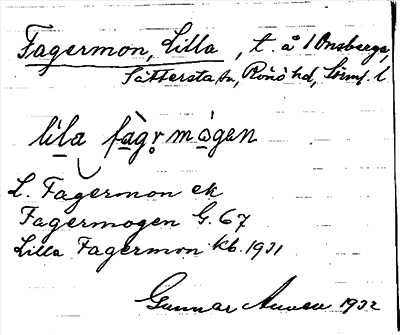 Fagermon, Lilla, t. å 1 Onsberga,
Sättersta sn, Rönö hd, Sörml. l.
lila fàgr màgen
L. Fagermon ek
Fagermogen G. 67
Lilla Fagermon kb. 1931
Gunnar 1932